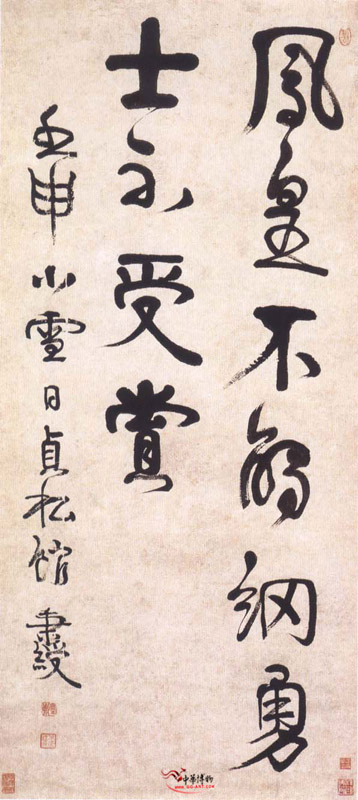 鳳皇不網勇
士不受賞
壬申小雪日貞松館
中華博物
www.GG-ART.com